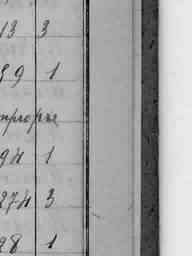 13 3
59 1
impropre
94 1
274 3
98 1